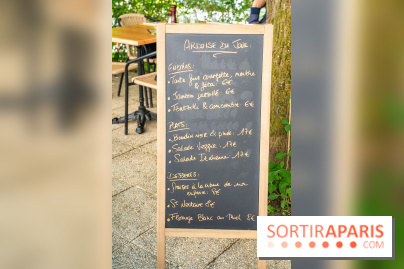 ARDOISE DU JOUR
ENTRÉES:
• Tarte fine courgette, menthe
& feta: 6€
• Jambon persillé 6€
• Tzatziki & concombre 6€
PLATS:
• Boudin noir & purée: 17€
• Salade Veggie: 17€
• Salade Italienne: 17€
DESSERTS:
• Fraises à la
5€
• St Nectaire 8€
• Fromage Blanc au Miel 5€
SORTIRAPARIS
.COM